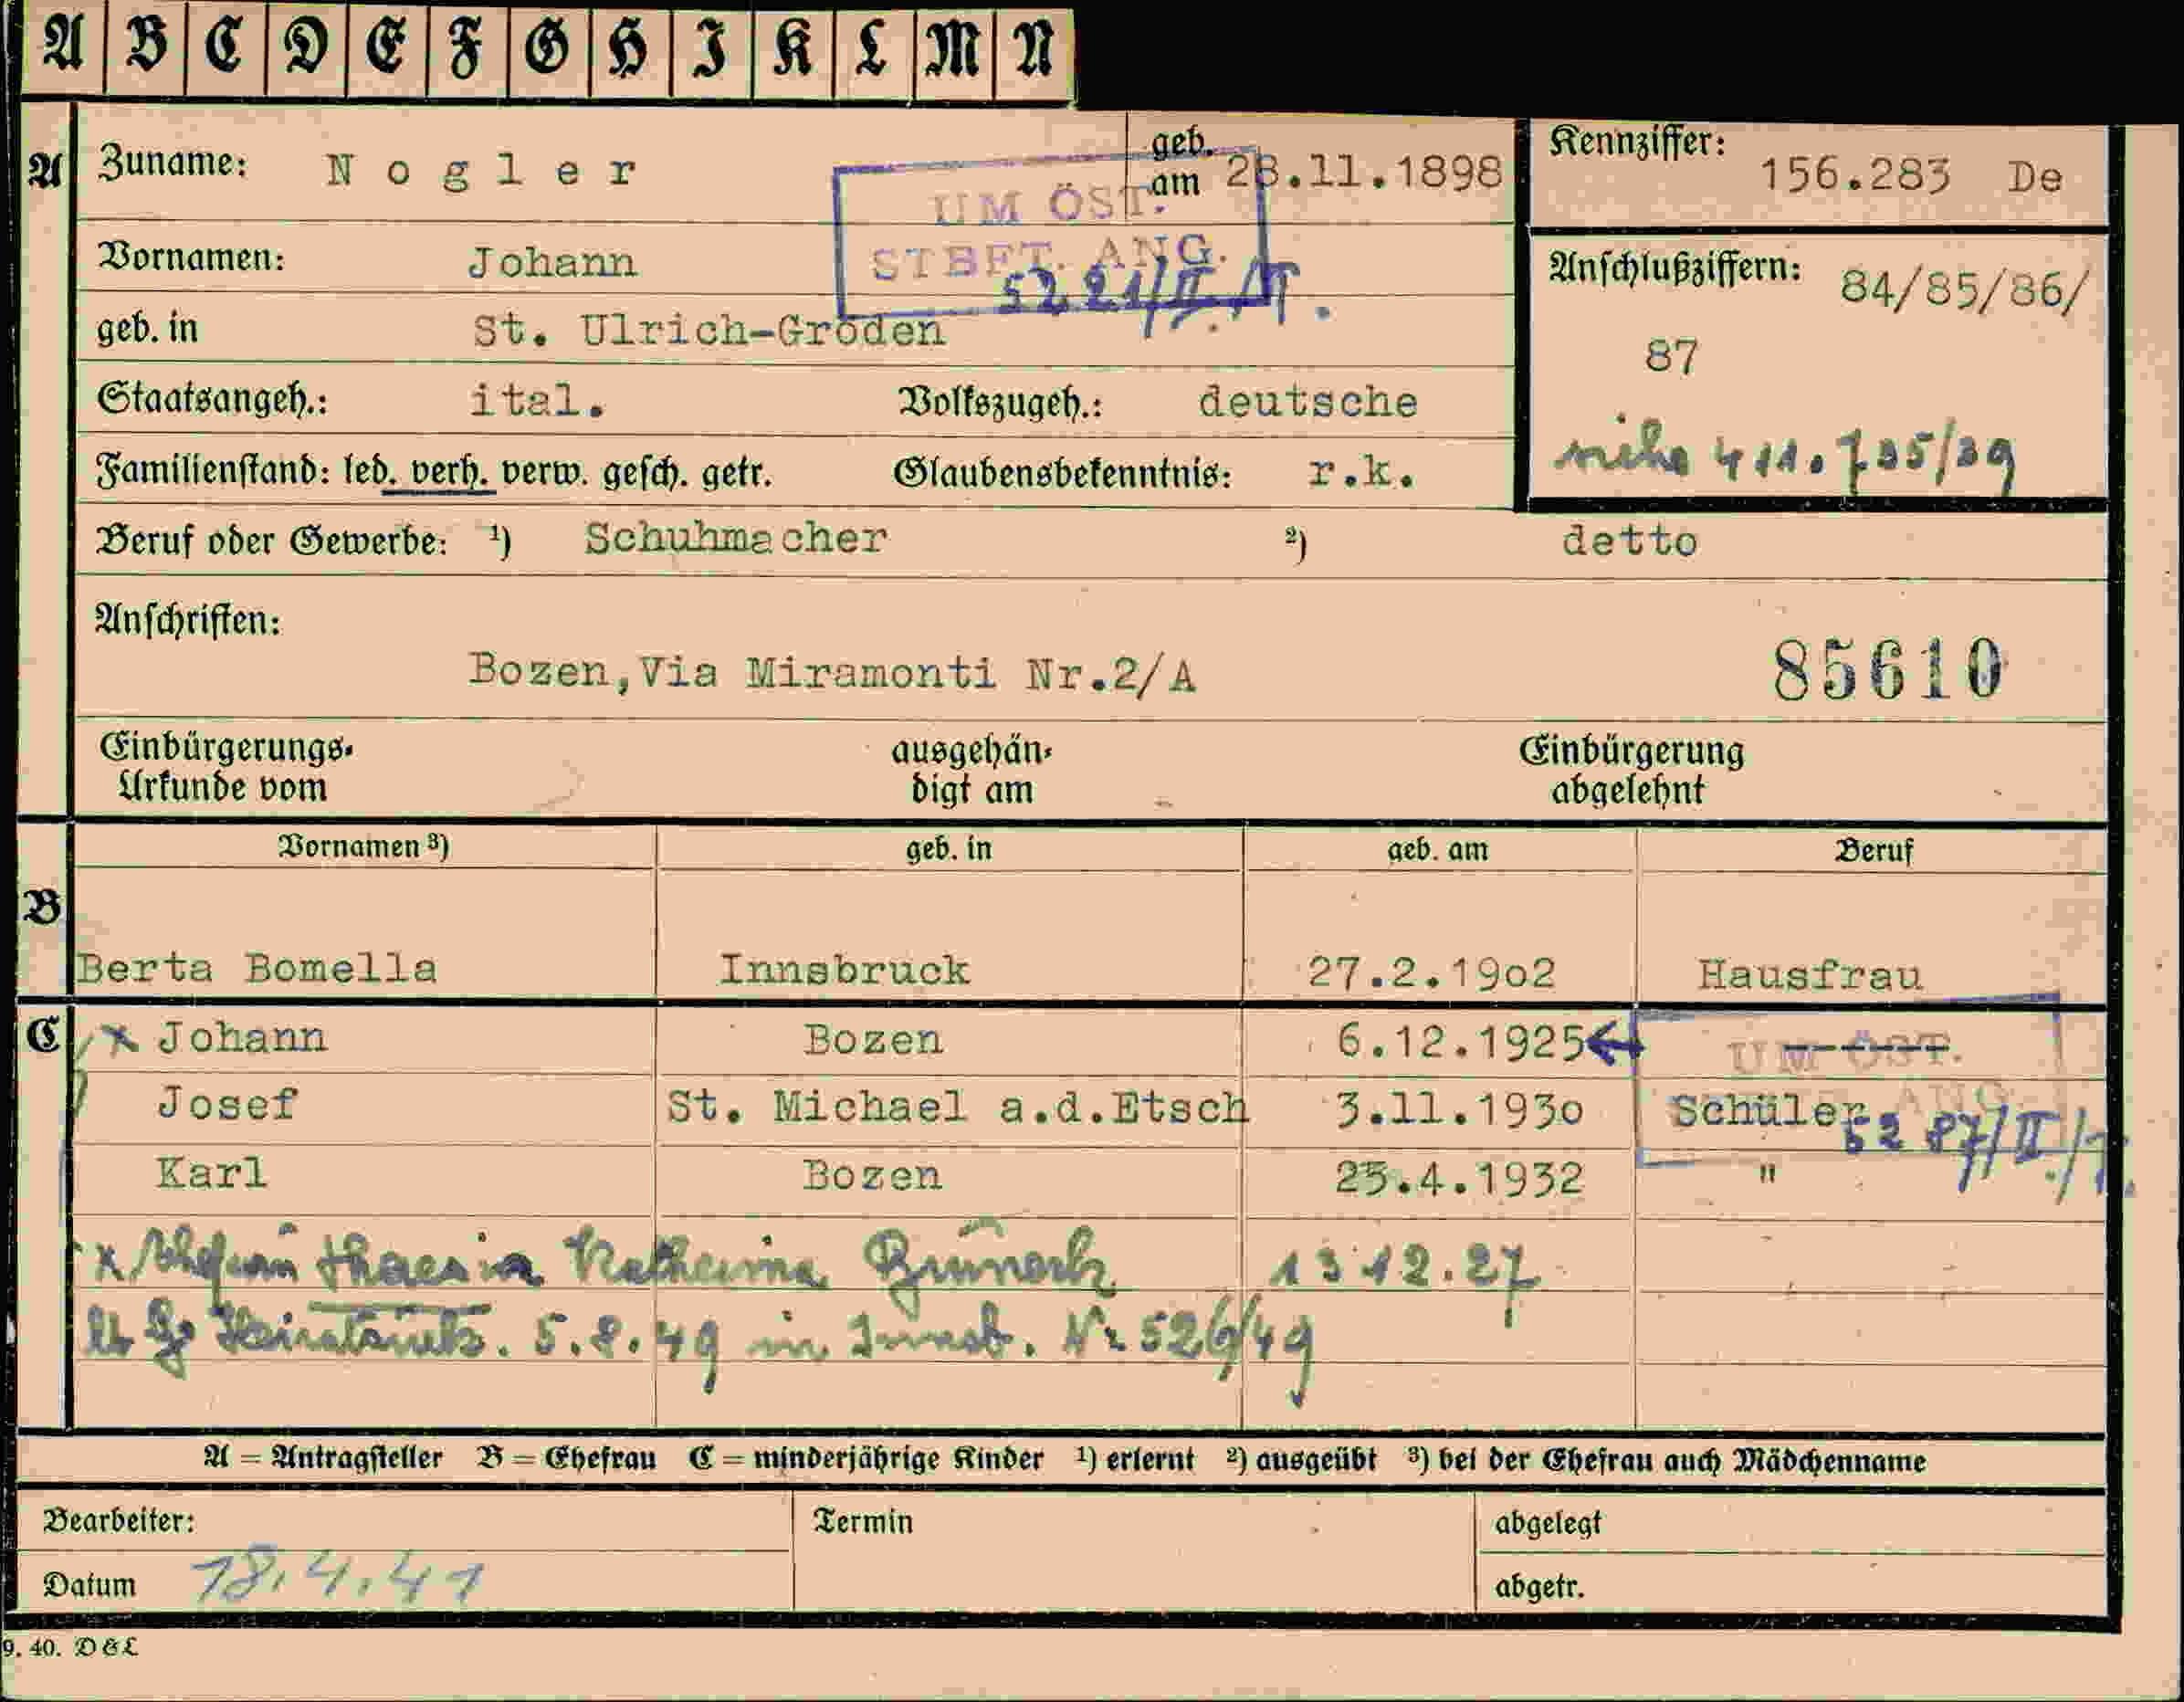 A B C D E F G H I K L M N
A Zuname: Nogler geb. am 28.11.1898 Kennziffer: 156.283 De
UM ÖST.
STBFT. ANG.
Vornamen: Johann Anschlußziffern: 84/85/86/
geb. in St. Ulrich-Gröden 87
Staatsangeh.: ital. Volkszugeh.: deutsche
Familienstand: led. verh. verw. gesch. getr. Glaubensbekenntnis: r.k. siehe
Beruf oder Gewerbe: ¹) Schuhmacher ²) detto
Anschriften:
Bozen,Via Miramonti Nr.2/A 85610
Einbürgerungs- Urkunde vom ausgehän- digt am Einbürgerung abgelehnt
Vornamen ³) geb. in geb. am Beruf
B
Berta Bomella Innsbruck 27.2.19o2 Hausfrau
C x Johann Bozen 6.12.1925 ----- UM ÖST.
Josef St. Michael a.d.Etsch 3.11.193o Schüler ANG.
Karl Bozen 23.4.1932 "
x Ehefrau Katharina 13 12.27
5.8.49 in Innsb. Nr 526/49
A = Antragsteller B = Ehefrau C = minderjährige Kinder ¹) erlernt ²) ausgeübt ³) bei der Ehefrau auch Mädchenname
Bearbeiter: Termin abgelegt
Datum 18.4.41 abgetr.
9. 40. D & L